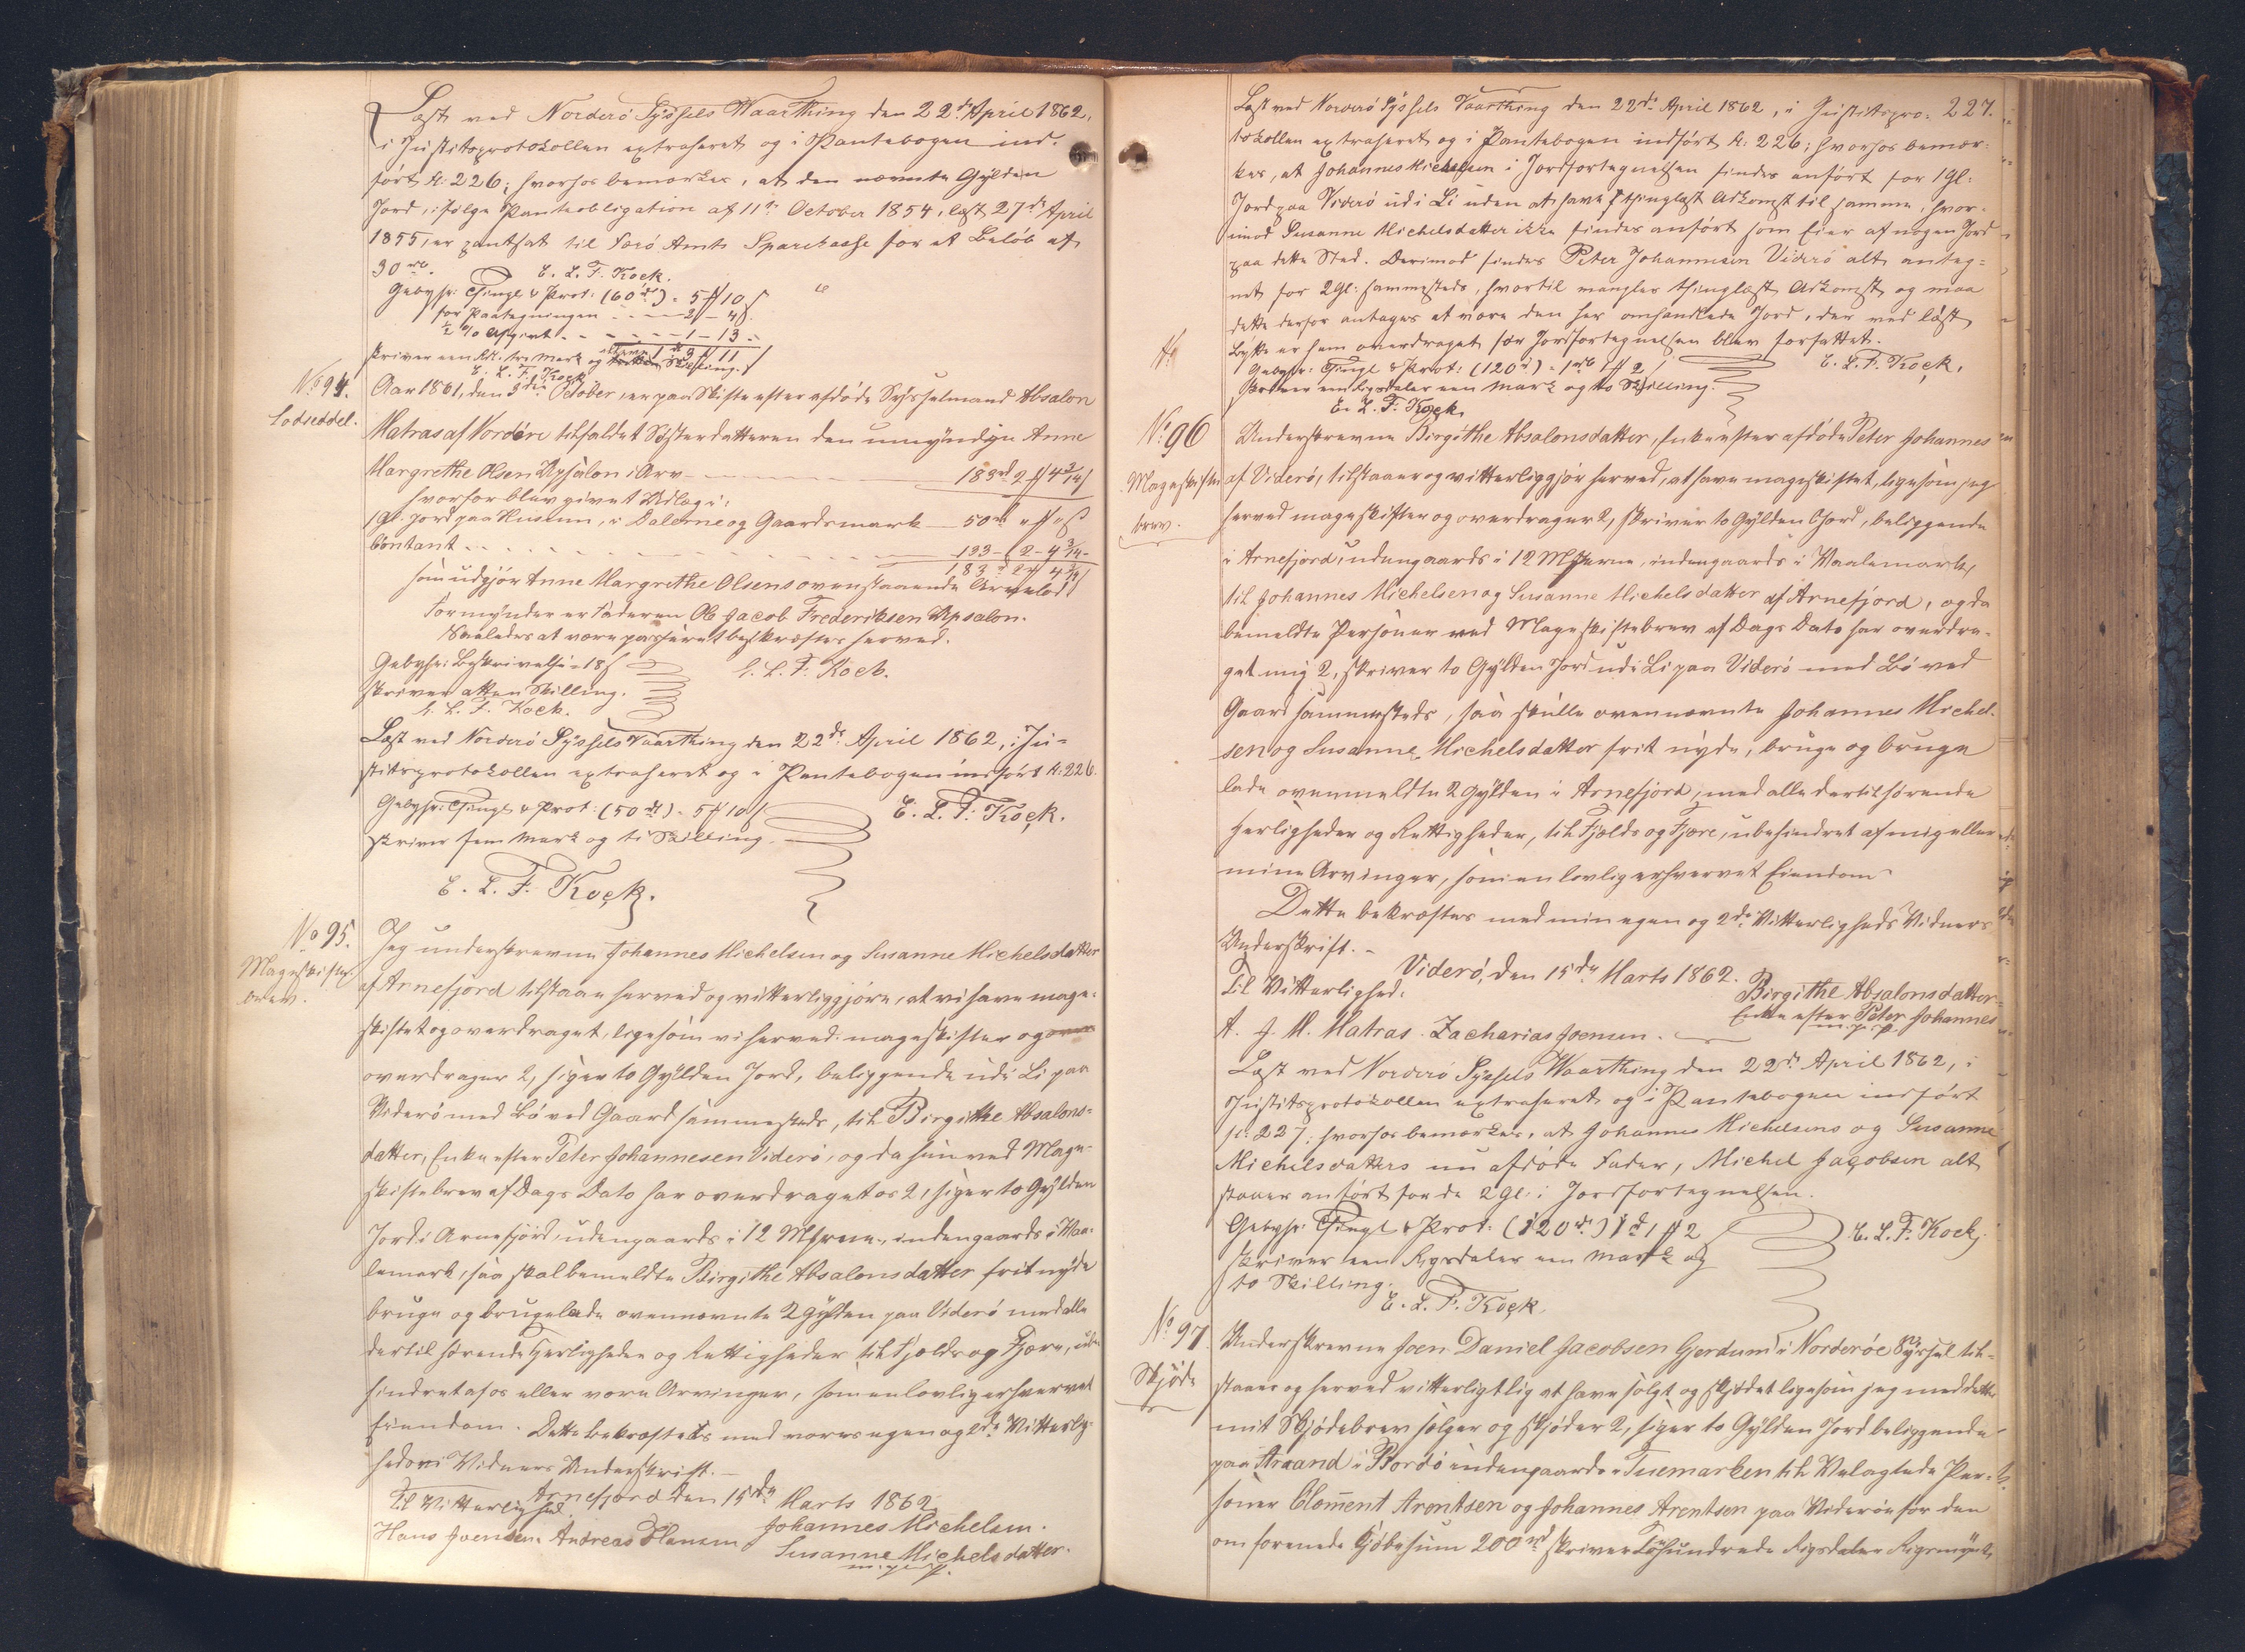 Læst ved Norderø Syssels Vaarthing den 22de April 1862,
i Justitsprotokollen extraheret og i Pantebogen ind-
ført fol: 226; hvorhos bemærkes, at den nævnte Gylden
Jord, ifølge Panteobligation af 11te October 1854, læst 27de April
1855, er pantsat til Færø Amts Sparekasse for et Beløb af
30 rd.
E. L. T. Kock.
Gebyhr: Thingl. & Prot: (60 rd) - 5 # 10 s
for Paategningen - 2 # - 4 s.
½ % Afgivt - - 1 - 13 -
1 rd 3 # 11 s
skriver een Rd. tre Mark og elleve Skilling.
E. L. T. Kock
No 94.
Lodseddel.
Aar 1861, den 9de October, er paa Skifte efter afdøde Sysselmand Absalon
Matras af Nordøre tilfaldet Søsterdatteren den umyndige Anne
Margrethe Olsen Apsalon i Arv - 183 rd 2 # 4 3/14 s
hvorfor blev givet Udlæg i:
1 gl. Jord paa Husum, i Dalerne og Gaardsmark - 50 rd " # " s
Contant - 133 - 2 - 4 3/14 -
183 rd 2 # 4 3/14 s
som udgjør Anne Margrethe Olsens ovenstaaende Arvelod
Formynder er Faderen Ole Jacob Frederiksen Apsalon.
Saaledes at være passeret bekræftes herved.
Gebyhr: Beskrivelse - 18 s
E. L. T. Kock.
skriver atten Skilling.
E. L. T. Kock.
Læst ved Norderø Syssels Vaarthing den 22de April 1862, i Ju-
stitsprotokollen extraheret og i Pantebogen indført fol: 226.
Gebyhr: Thingl. & Prot: (50 rd) - 5 # 10 s
E. L. T. Kock.
skriver fem Mark og ti Skilling.
E. L. T. Kock.
No 95.
Mageskifte-
brev.
Jeg underskrevne Johannes Michelsen og Susanne Michelsdatter
af Arnefjord tilstaae herved og vitterliggjøre, at vi have mage-
skiftet og overdraget, ligesom vi herved mageskifter og
overdrager 2, siger to Gylden Jord, beliggende udi Li paa
Viderø med Bø ved Gaard sammesteds, til Birgithe Absalons-
datter, Enke efter Peter Johannesen Viderø, og da hun ved Mage-
skiftebrev af Dags Dato har overdraget os 2, siger to Gylden
Jord i Arnefjord, udengaards i 12 Mrkrne, indengaards i Vaa-
lemark, saa skal bemeldte Birgithe Absalonsdatter frit nyde
bruge og brugelade ovennævnte 2 Gylden paa Viderø med alle
dertil hørende Herligheder og Rettigheder til Fjelds og Fjære, ube-
hindret af os eller vore Arvinger, som en lovlig erhvervet
Eiendom. Dette bekræftes med vores egen og 2de Vitterlig-
heds Vidners Underskrift. -
Arnefjord den 15de Marts 1862
Til Vitterlighed.
Johannes Michelsen.
Hans Joensen. Andreas Hansen
Susanne Michelsdatter.
m. p. P.
227.
Læst ved Norderø Syssels Vaarthing den 22de April 1862, i Justitspro-
tokollen extraheret og i Pantebogen indført fol: 226; hvorhos bemær-
kes, at Johannes Michelsen i Jordfortegnelsen findes anført for 1 Gl.
Jord paa Viderø udi Li uden at have thinglæst Adkomst til samme, hvor-
imod Susanne Michelsdatter ikke findes anført som Eier af nogen Jord
paa dette Sted. Derimod findes Peter Johannesen Viderø alt anteg-
net for 2 Gl. sammesteds, hvortil mangler thinglæst Adkomst, og maa
dette derfor antages at være den her omhandlede Jord, der ved løst
Bytte er ham overdraget før Jordfortegnelsen blev forfattet.
E. L. T. Kock.
Gebyhr: Thingl. & Prot: (120 rd) - 1 rd 1 # 2 s
skriver een Rigsdaler een Mark og to Skilling.
E. L. T. Kock.
No 96
Mageskifte
brev.
Underskrevne Birgithe Absalonsdatter, Enke efter afdøde Peter Johannes
af Viderø, tilstaaer og vitterliggjør herved, at have mageskiftet, ligesom jeg
herved mageskifter og overdrager 2, skriver to Gylden Jord, beliggende
i Arnefjord, udengaards i 12 Mrkerne, indengaards i Vaalemark,
til Johannes Michelsen og Susanne Michelsdatter af Arnefjord, og da
bemeldte Personer ved Mageskiftebrev af Dags Dato har overdra-
get mig 2, skriver to Gylden Jord udi Li paa Viderø med Bø ved
Gaard sammesteds, saa skulle ovennævnte Johannes Michel-
sen og Susanne Michelsdatter frit nyde, bruge og bruge
lade ovenmeldte 2 Gylden i Arnefjord, med alle dertilhørende
Herligheder og Rettigheder, til Fjelds og Fjære, ubehindret af mig eller
mine Arvinger, som en lovlig erhvervet Eiendom.
Dette bekræftes med min egen og 2de Vitterligheds Vidners
Underskrift. -
Viderø, den 15de Marts 1862.
Til Vitterlighed:
Birgithe Absalonsdatter
Enke efter Peter Johannes
m. p. P.
A. J. M. Matras. Zacharias Joensen.
Læst ved Norderø Syssels Vaarthing den 22de April 1862, i
Justitsprotokollen extraheret og i Pantebogen indført
fol: 227; hvorhos bemærkes, at Johannes Michelsens og Susanne
Michelsdatters nu afdøde Fader, Michel Jacobsen alt
staaer anført for de 2 Gl. i Jordfortegnelsen.
Gebyhr: Thingl. & Prot: (120 rd) 1 rd 1 # 2
E. L. T. Kock.
skriver een Rigsdaler een Mark og
to Skilling.
E. L. T. Kock.
No 97.
Skjøde
Underskrevne Joen Daniel Jacobsen Gjerdum i Norderøe Syssel til-
staaer og herved vitterligtlig at have solgt og skjødet ligesom jeg med dette
mit Skjødebrev sælger og skjøder 2, siger to Gylden Jord beliggende
paa Araand i Bordø indengaards i Tuemarken til Velagtede Per-
soner Clement Arentsen og Johannes Arentsen paa Viderøe for den
omforenede Kjøbesum 200 rd skriver Tohundrede Rigsdaler Rigsmynt